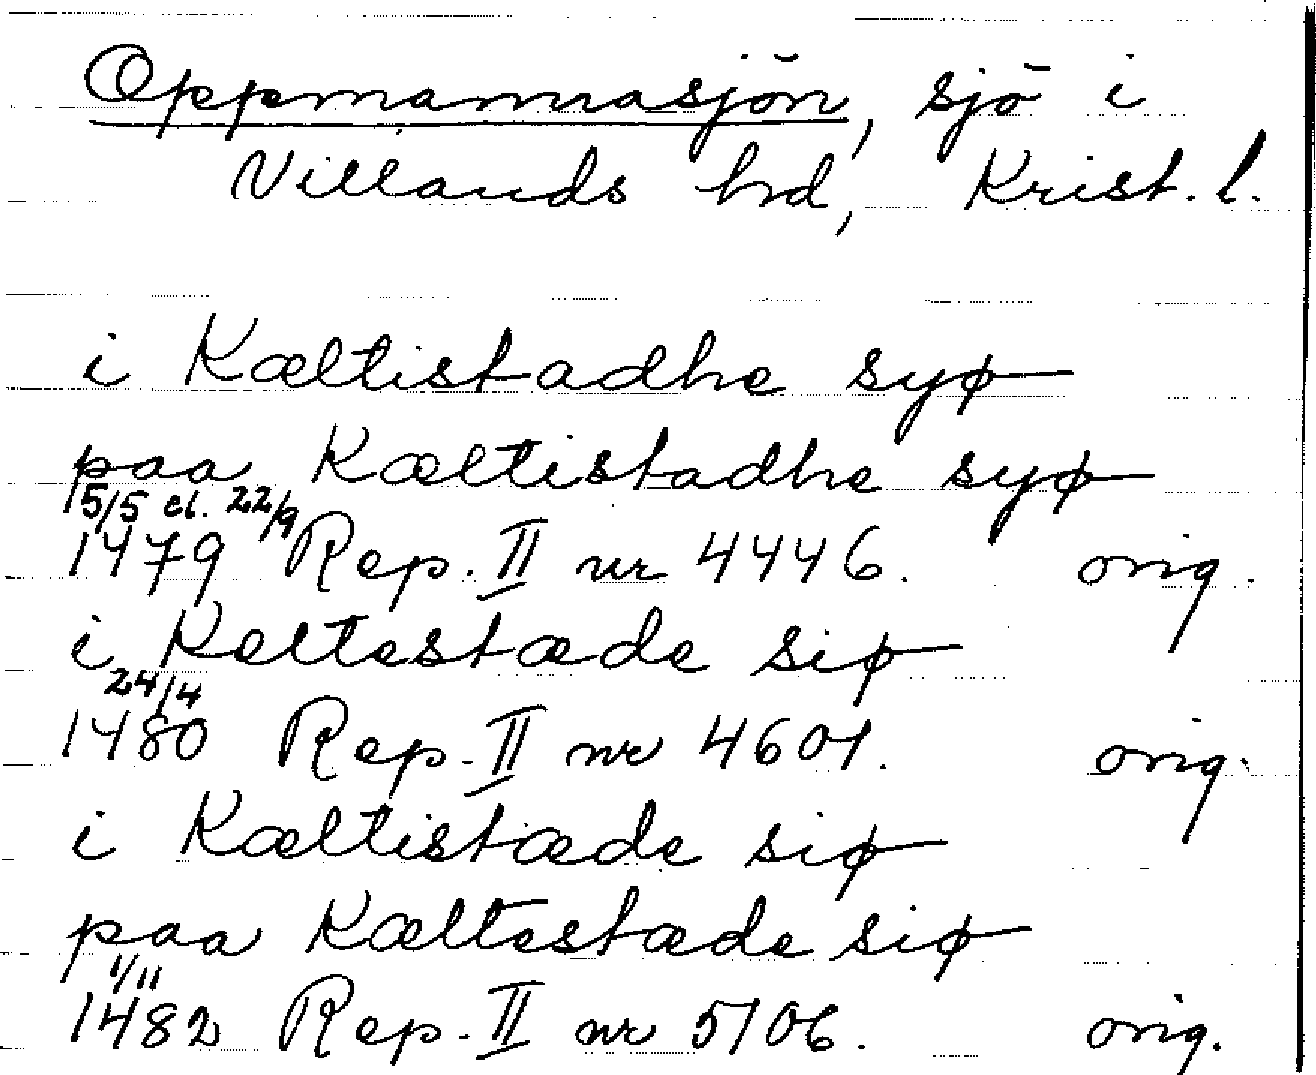 Oppmannasjön, sjö i
Villands hd, Krist. l.
i Kæltistadhe syø
paa Kæltistadhe syø
15/5 el. 22/9
1479 Rep. II nr 4446. orig.
i Keltestæde siø
24/4
1480 Rep. II nr 4601. orig.
i Kæltistæde siø
paa Kæltestæde siø
1/11
1482 Rep. II nr 5106. orig.